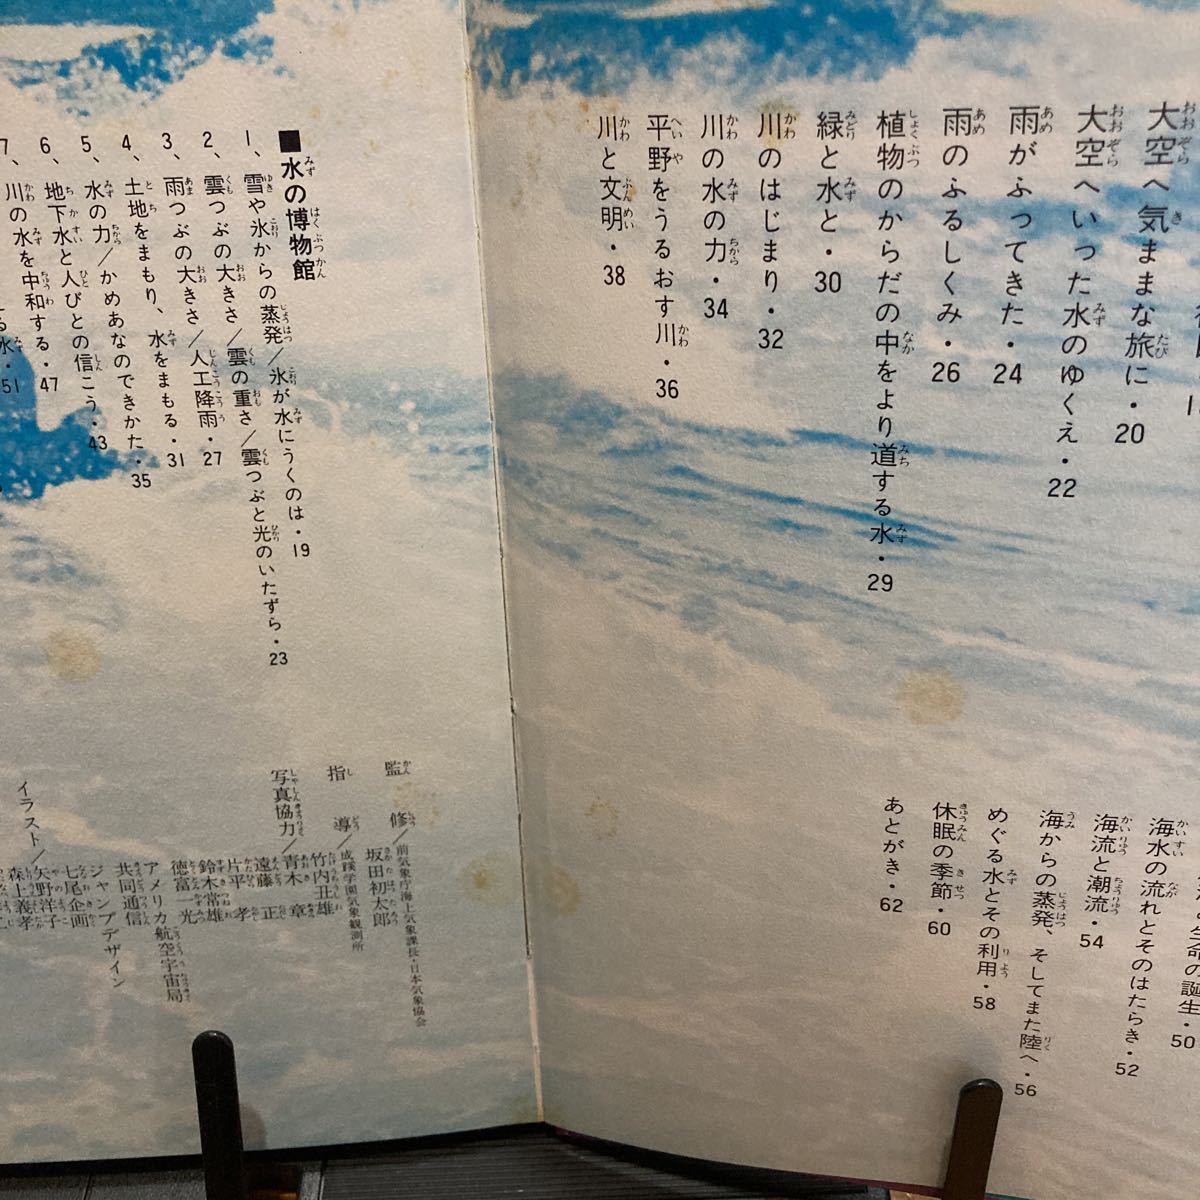 大空へ気ままな旅に・20
大空へいった水のゆくえ・22
雨がふってきた・24
雨のふるしくみ・26
植物のからだの中をより道する水・29
緑と水と・30
川のはじまり・32
川の水の力・34
平野をうるおす川・36
川と文明・38
生命の誕生・50
海水の流れとそのはたらき・52
海流と潮流・54
海からの蒸発、そしてまた陸へ・56
めぐる水とその利用・58
休眠の季節・60
あとがき・62
■水の博物館
1、雪や氷からの蒸発/氷が水にうくのは・19
2、雲つぶの大きさ/雲の重さ/雲つぶと光のいたずら・23
3、雨つぶの大きさ/人工降雨・27
4、土地をまもり、水をまもる・31
5、水の力/かめあなのできかた・35
6、地下水と人びとの信こう・43
7、川の水を中和する・47
水・51
監修/前気象庁海上気象課長・日本気象協会
坂田初太郎
指導/成蹊学園気象観測所
竹内丑雄
写真協力/青木 章
遠藤 正
片平 孝
鈴木常雄
徳富一光
共同通信
アメリカ航空宇宙局
ジャンプデザイン
イラスト/七尾企画
矢野洋子
森上義孝